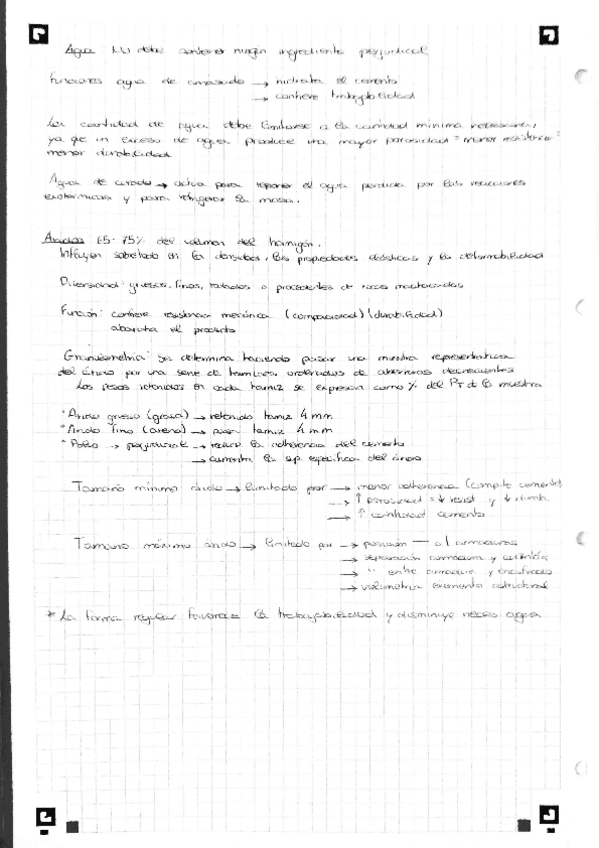 Agua No debe contener ningún ingrediente perjudicial
Funciones agua de amasado → hidrata el cemento
→ confiere trabajabilidad
La cantidad de agua debe limitarse a la cantidad mínima necesaria,
ya que un exceso de agua produce una mayor porosidad = menor resistencia =
menor durabilidad
Agua de curado → actua para reponer el agua perdida por las reacciones
exotérmicas y para refrigerar la masa.
Áridos 65-75% del volumen del hormigón.
Influyen sobretodo en la densidad, las propiedades elásticas y la deformabilidad
Diversidad: gruesos, finos, rodados o procedentes de rocas machacadas
Función: confiere resistencia mecánica (compacidad) (durabilidad)
abarata el producto
Granulometria: se determina haciendo pasar una muestra representativa
del árido por una serie de tamices ordenados de aberturas decrecientes
Los pesos retenidos en cada tamiz se expresan como % del PT de la muestra
* Árido grueso (grava) → retenido tamiz 4 mm
* Árido fino (arena) → pasan tamiz 4 mm
* Polvo → perjudicial → reduce la adherencia del cemento
→ aumenta la sup. especifica del árido
Tamaño mínimo árido → limitado por → menor adherencia (compite cemento)
→ ↑ porosidad = ↓ resist y ↓ durab.
→ ↑ cantidad cemento
Tamaño máximo árido → limitado por → posición — o | armaduras
→ separación armadura y
→ " entre armadura y encofrado
→ volumetria elemento estructural
* La forma regular favorece la trabajabilidad y disminuye neces. agua